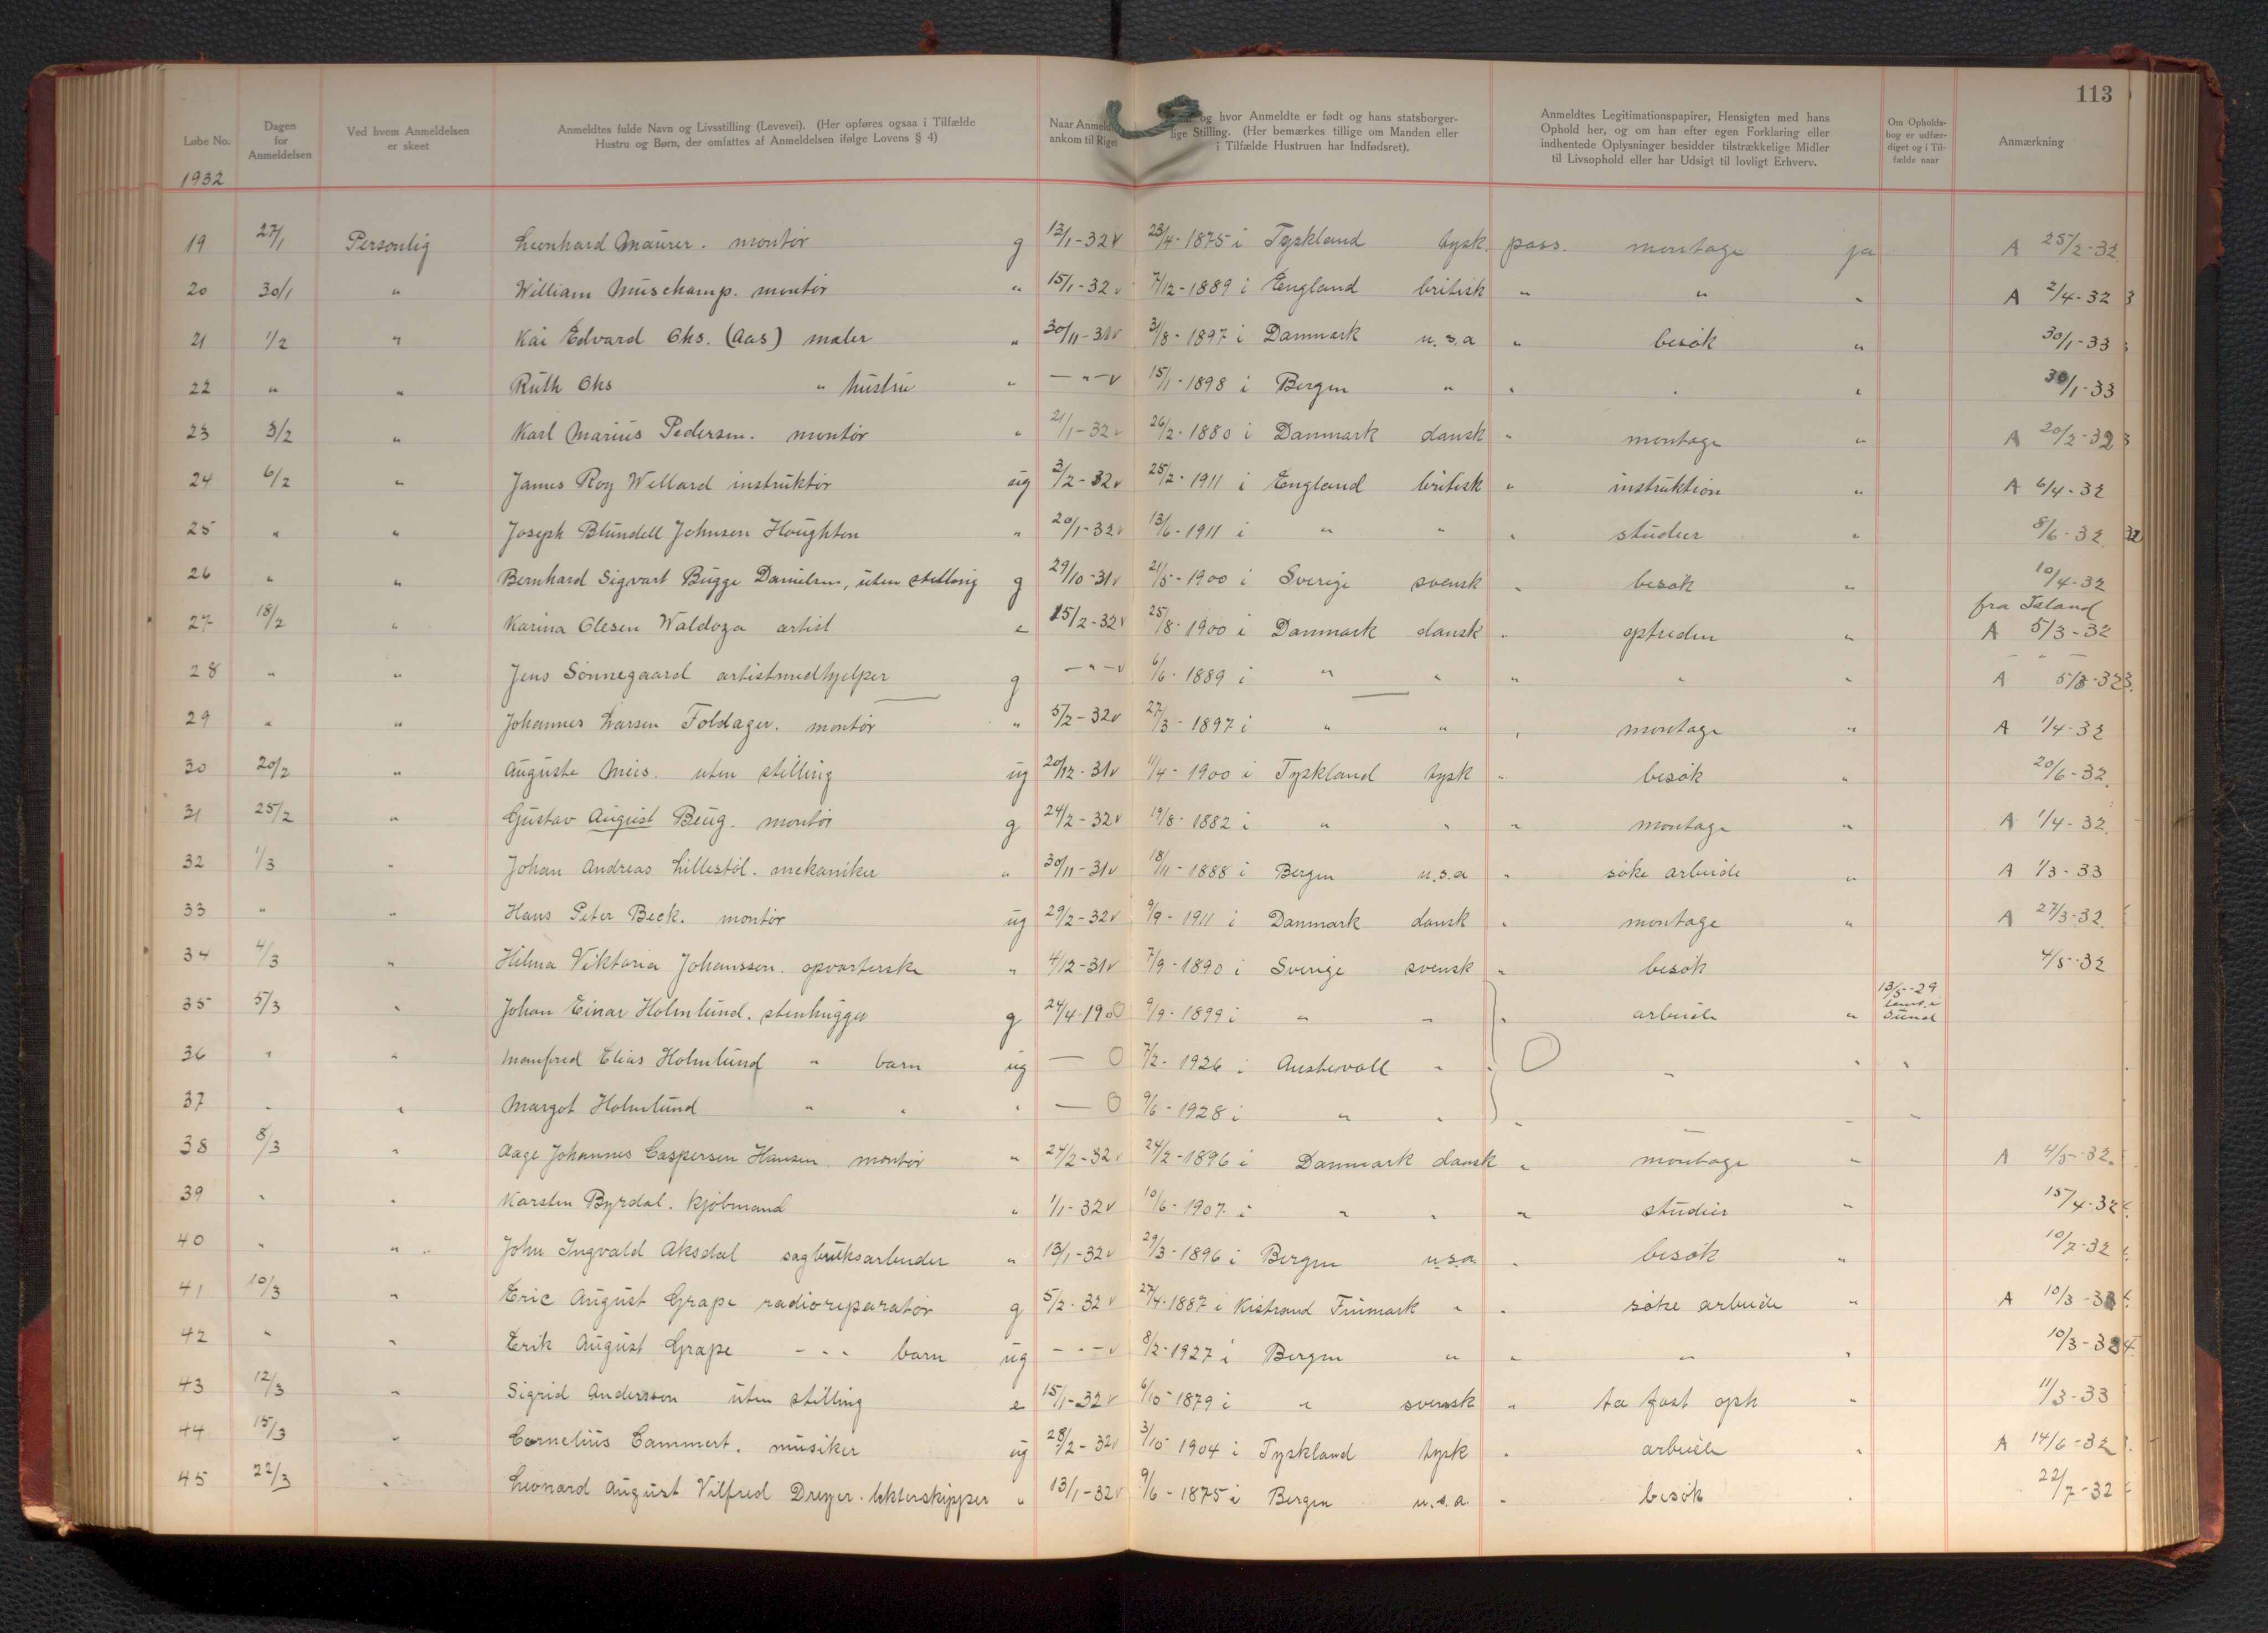 113
Løbe No. Dagen for Anmeldelsen Ved hvem Anmeldelsen er skeet Anmeldtes fulde Navn og Livsstilling (Levevei). (Her opføres ogsaa i Tilfælde Hustru og Børn, der omfattes af Anmeldelsen ifølge Lovens § 4) Naar Anmeldte ankom til Riget og hvor Anmeldte er født og hans statsborgerlige Stilling. (Her bemærkes tillige om Manden eller i Tilfælde Hustruen har Indfødsret). Anmeldtes Legitimationspapirer, Hensigten med hans Ophold her, og om han efter egen Forklaring eller indhentede Oplysninger besidder tilstrækkelige Midler til Livsophold eller har Udsigt til lovligt Erhverv. Om Opholdsbog er udfærdiget og i Tilfælde naar Anmærkning
1932
19 27/1 Personlig Leonhard Maurer. montør g 12/1-32 v 23/4-1875 i Tyskland tysk. pass. montage ja A 25/2-32
20 30/1 " William Muschamp. montør " 15/1-32 v 7/12-1889 i England britisk " " " A 2/4-32
21 1/2 " Kai Edvard Ohs. (Aas) maler " 30/11-31 v 31/8-1897 i Danmark u.s.a " besøk " 30/1-33
22 " " Ruth Ohs " hustru " — " — v 15/1-1898 i Bergen " " " " 30/1-33
23 3/2 " Karl Marius Pedersen. montør " 21/1-32 v 26/2-1880 i Danmark dansk " montage " A 20/2-32
24 6/2 " James Roy Willard instruktør ug 3/2-32 v 25/2-1911 i England britisk " instruktion " A 6/4-32
25 " " Joseph Blundell Johnson Houghton " 20/1-32 v 13/6-1911 i " " " studier " 8/6-32
26 " " Bernhard Sigvart Bugge Danielsen, uten stilling g 29/10-31 v 21/5-1900 i Sverige svensk " besøk " 10/4-32
fra Island
27 18/2 " Karina Olesen Waldoza artist e 15/2-32 v 25/8-1900 i Danmark dansk " optreden " A 5/3-32
28 " " Jens Sønnegaard artistmedhjelper g — " — v 6/6-1889 i " " " " " A 5/3-32
29 " " Johannes Larsen Foldager. montør " 5/2-32 v 27/3-1897 i " " " montage " A 1/4-32
30 20/2 " Auguste Meis. uten stilling ug 20/12-31 v 11/4-1900 i Tyskland tysk " besøk " 20/6-32.
31 25/2 " Gustav August Beug. montør g 24/2-32 v 19/8-1882 i " " " montage " A 1/4-32.
32 1/3 " Johan Andreas Lillestøl. mekaniker " 30/11-31 v 18/11-1888 i Bergen u.s.a " søke arbeide " A 1/3-33
33 " " Hans Peter Beck. montør ug 29/2-32 v 9/9-1911 i Danmark dansk " montage " A 27/3-32.
34 4/3 " Hilma Viktoria Johansson. opvarterske " 4/12-31 v 7/9-1890 i Sverige svensk " besøk 4/5-32
35 5/3 " Johan Einar Holmlund. stenhugger g 24/4-1900 9/9-1899 i " " " arbeide " 13/5-29 Lens. i Sund
36 " " Manfred Elias Holmlund " barn ug — 0 7/2-1926 i Austevoll " " " " "
37 " " Margot Holmlund " " " — 0 9/6-1928 i " " " " " "
38 8/3 " Aage Johannes Caspersen Hansen. montør " 24/2-32 v 24/2-1896 i Danmark dansk " montage " A 4/5-32.
39 " " Karsten Byrdal. kjøbmand " 1/1-32 v 10/6-1907. i " " " studier " 15/4-32
40 " " John Ingvald Aksdal sagbruksarbeider " 13/1-32 v 29/3-1896 i Bergen u.s.a. " besøk " 10/7-32
41 10/3 " Eric August Grape radioreparatør g 5/2-32 v 27/4-1887 i Kistrand Finmark " " søke arbeide " A 10/3-33
42 " " Erik August Grape - - - barn ug - - - v 8/2-1927 i Bergen " " " " 10/3-33
43 12/3 " Sigrid Andersson uten stilling e 15/1-32 v 6/10-1879 i " svensk " ta fast oph " 11/3-33
44 15/3 " Cornelius Cammert. musiker ug 28/2-32 v 3/10 1904 i Tyskland tysk " arbeide " A 14/6-32
45 22/3 " Leonard August Vilfred Dreyer. lekterskipper " 13/1-32 v 9/6-1875 i Bergen u.s.a. " besøk " 22/7-32